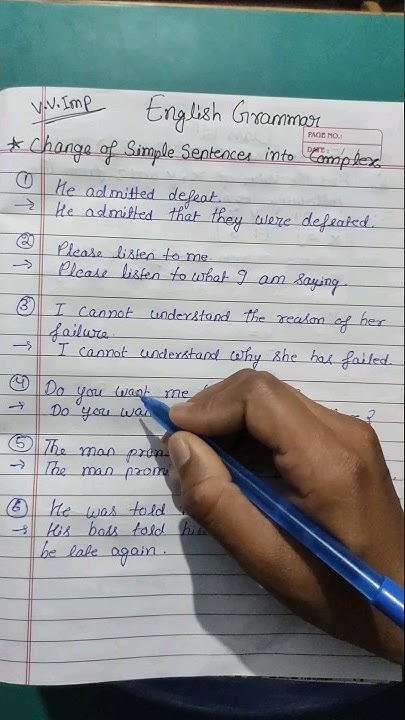 V.V.Imp
English Grammar
PAGE NO.:
DATE:
* Change of Simple Sentences into Complex
① He admitted defeat.
→ He admitted that they were defeated.
② Please listen to me.
→ Please listen to what I am saying.
③ I cannot understand the reason of her
failure.
→ I cannot understand why she has failed.
④ Do you want me
→ Do you ?
⑤ The man
→ The man
⑥ He was told
→ His boss told
be late again.